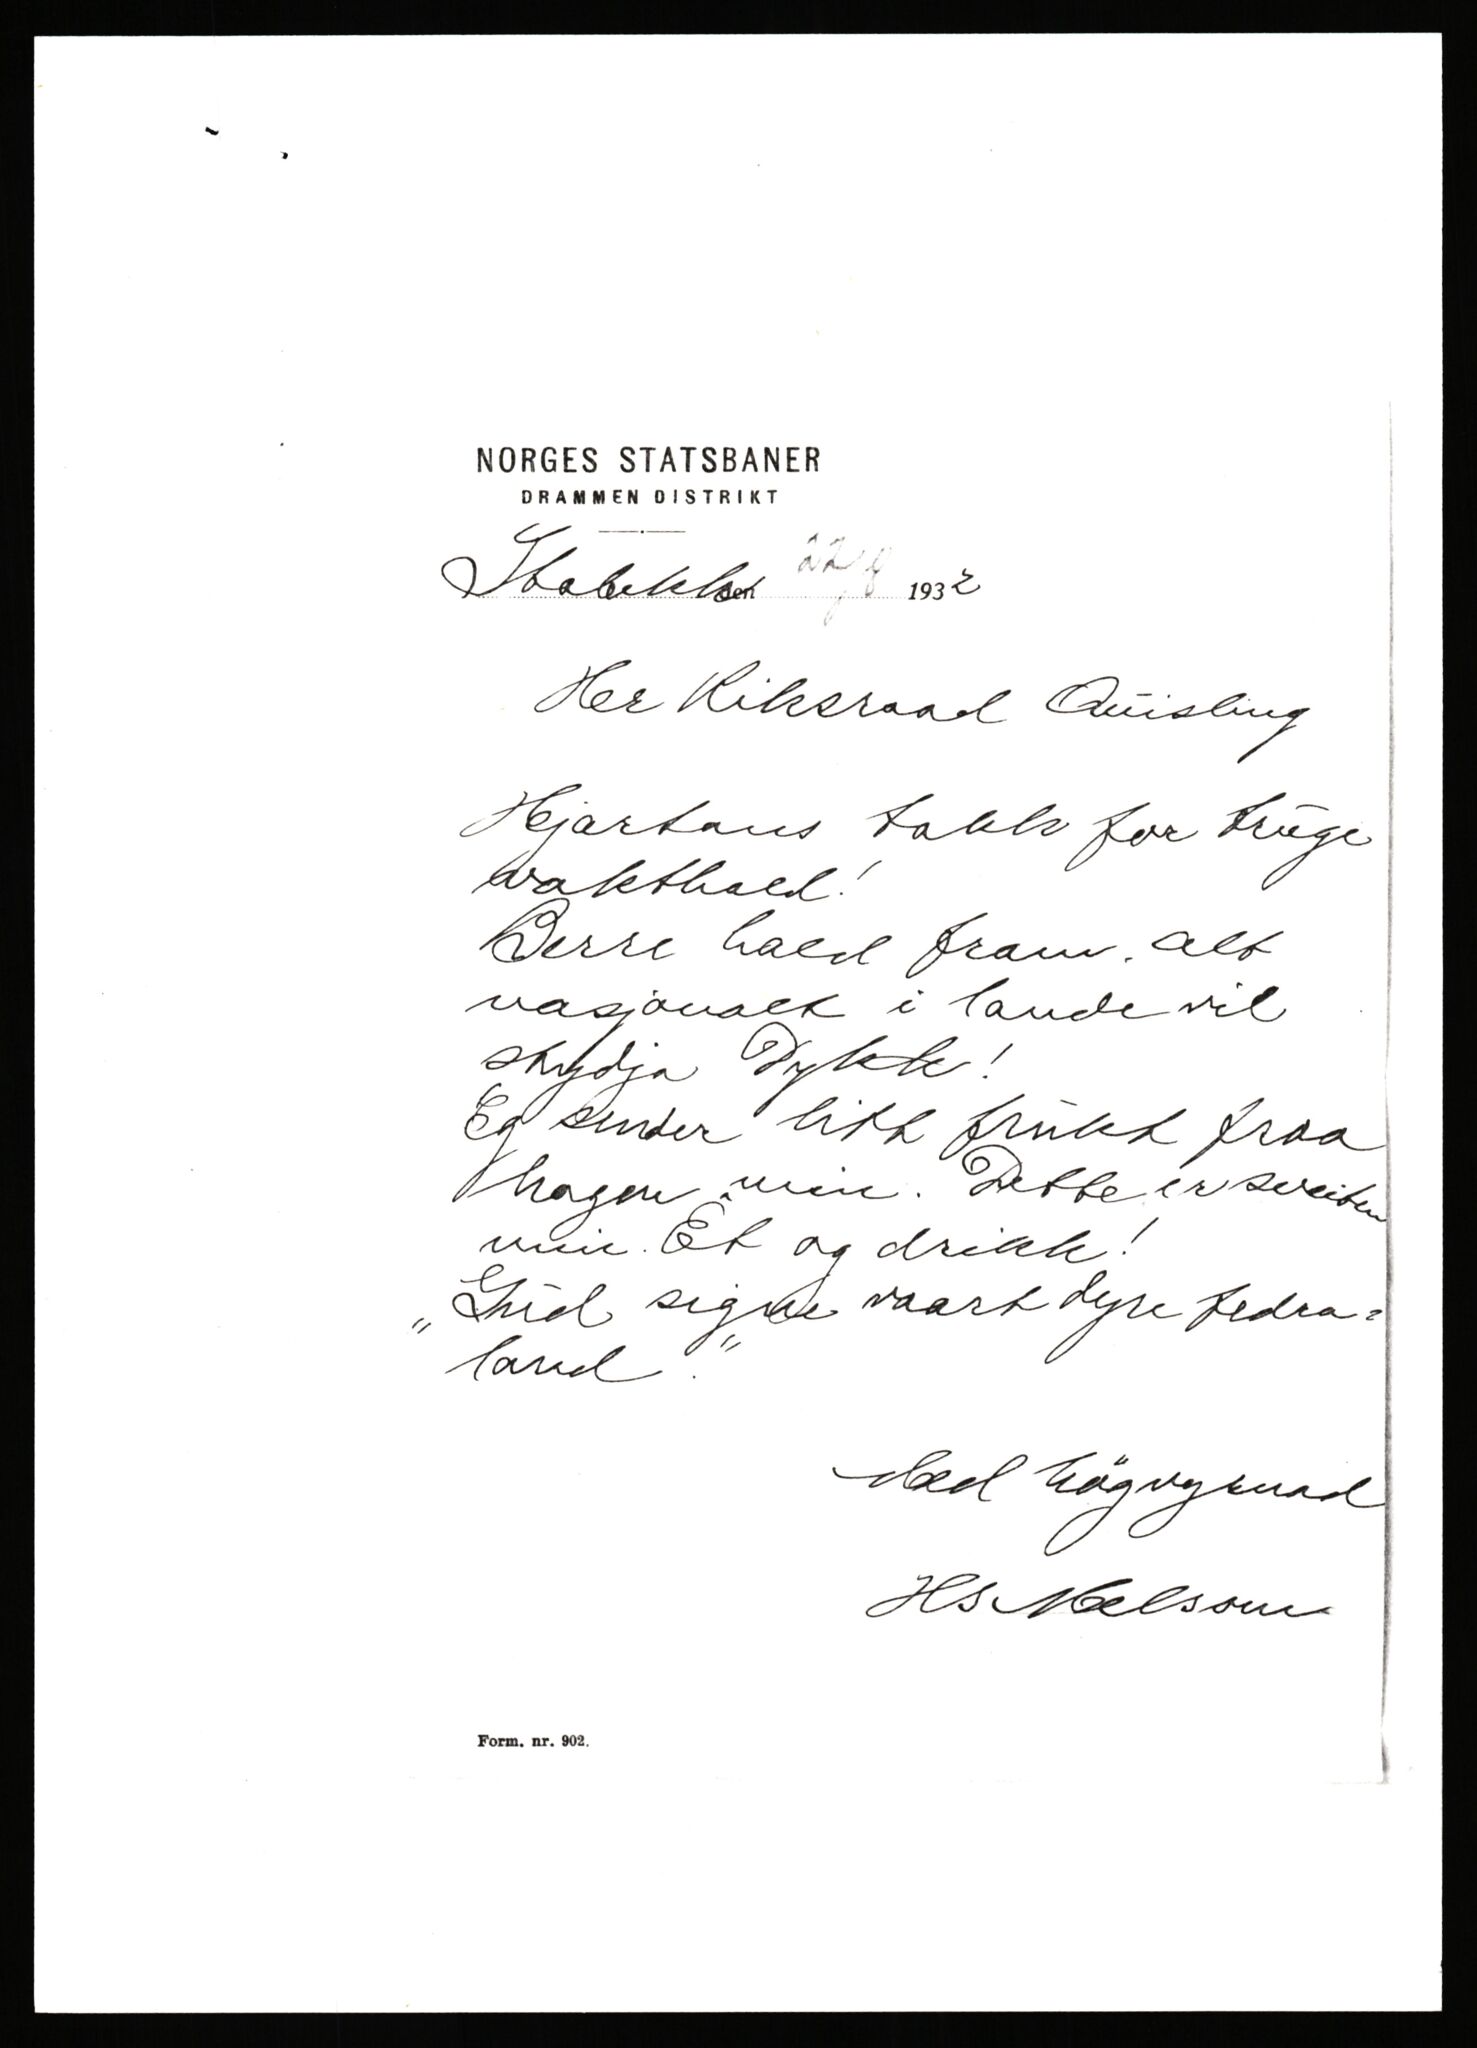 NORGES STATSBANER
DRAMMEN DISTRIKT
Stabekk den 22/8 1932
Her Riksraad Quisling
Hjartans takk for truge
vakthald!
Berre hald fram. Alt
nasjonalt i lande vil
skydja Dykk!
Eg sender litt frukt fraa
hagen min. Dette er sveiten
min. Et og drikk!
„Gud signe vaart dyre fedra=
land."
Med högvyrnad
Hs Melsom
Form. nr. 902.